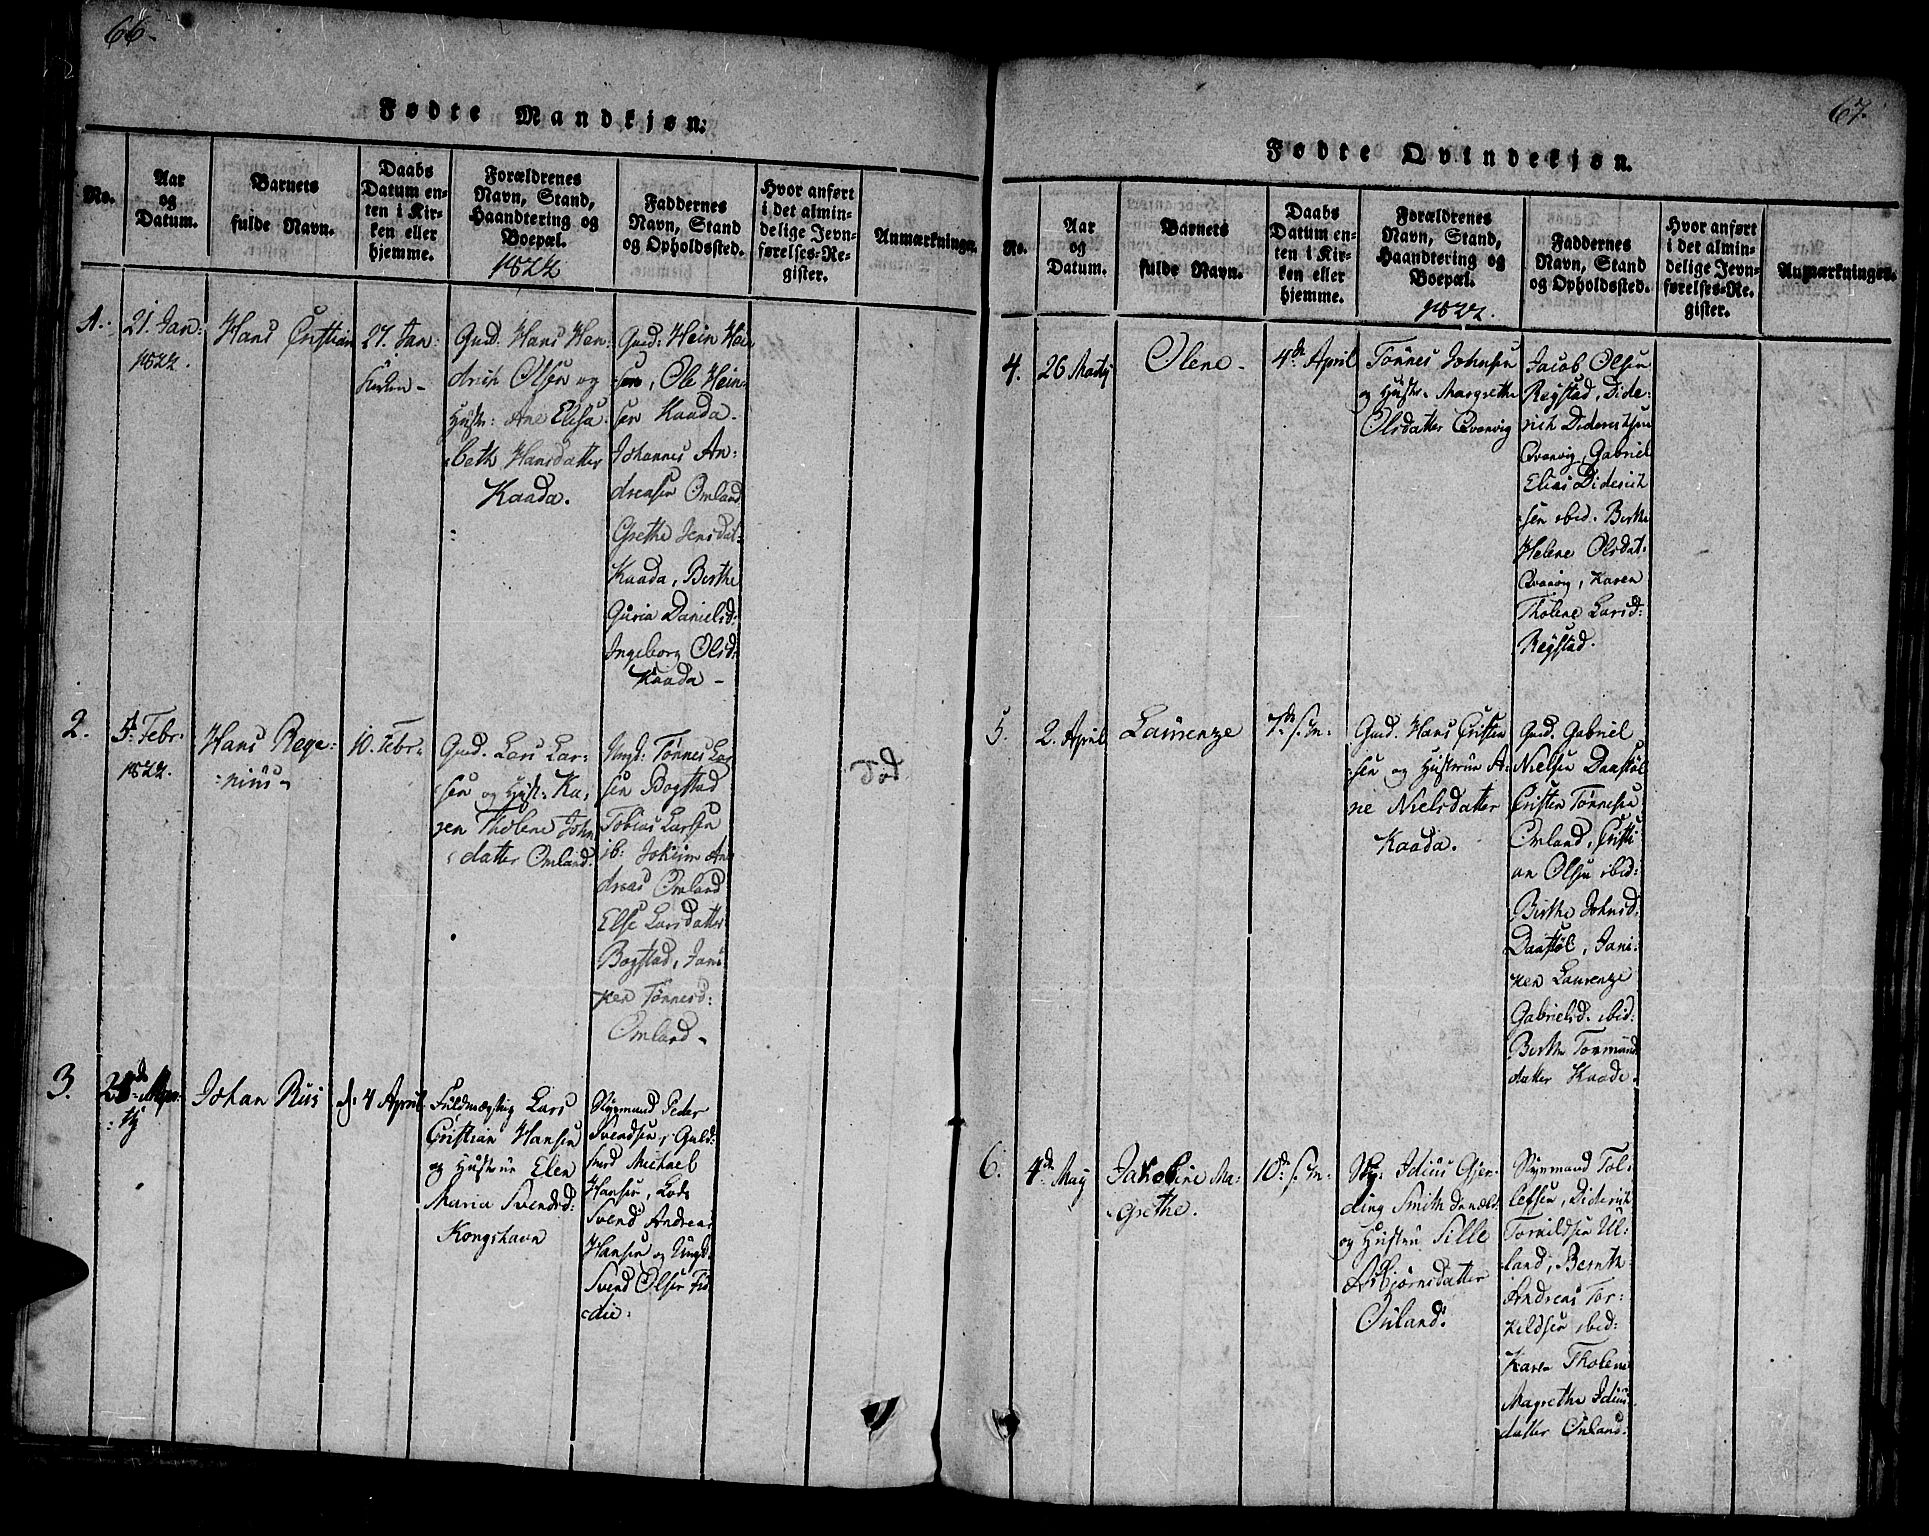 66.
Fødte Mandkjøn.
No.
Aar
og
Datum.
Barnets
fulde Navn.
Daabs
Datum en-
ten i Kir-
ken eller
hjemme.
Forældrenes
Navn, Stand,
Haandtering og
Boepæl.
1822
Faddernes
Navn, Stand
og Opholdssted.
Hvor anført
i det almin-
delige Jevn-
førelses-Re-
gister.
Anmærkninger.
1.
21. Jan:
1822.
Hans Cristian
27. Jan:
Kirken -
Gmd. Hans Hen-
drich Olsen og
Hustr: Ane Elisa-
beth Hansdatter
Kaada.
Gmd: Hein Hei-
sen, Ole Hein-
sen Kaada.
Johannes An-
dreasen Omland
Grethe Jensdat:
Kaada, Berthe
Guria Danielsd:
Ingeborg Olsd:
Kaada -
2.
5. Febr.
1822.
Hans Rege-
nius -
10. Febr.
Gmd. Lars Lar-
sen og Hust: Ka-
ren Tholene John
datter Omland.
Ungk. Tønnes Lar
sen Bogstad
Tobias Larsen
ib: Jokim An
dreas Omland
Else Larsdatter
Bogstad, Jani-
ken Tønnesd:
Omland -
Død
3.
Johan Rus
d. 4 April
Fuldmægtig Lars
Cristian Hansen
og Hustrue Elen
Maria Svendsd:
Kongshavn
Styrmand Peder
Svendsen, Guld-
smed Michael
Hansen, Lods
Svend Andreas
Hansen og Ungk
Svend Olsen
67.
Fødte Qvindekjøn.
No.
Aar
og
Datum.
Barnets
fulde Navn.
Daabs
Datum en-
ten i Kir-
ken eller
hjemme.
Forældrenes
Navn, Stand,
Haandtering og
Boepæl.
1822.
Faddernes
Navn, Stand
og Opholdssted.
Hvor anført
i det almin-
delige Jevn-
førelses-Re-
gister.
Anmærkninger.
4.
26 Martj
Olene -
4de April
Tønnes Johnsen
og Hustr. Margrethe
Olsdatter Qvanvig
Jacob Olsen
Røystad, Dide-
rich Diderichsen
Qvanvig, Gabriel
Elias Diderich
sen ibid. Berthe
Helene Olsdat.
Qvanvig, Karen
Tholene Larsd:
Røystad.
5.
2. April
Laurenze
7de s. m.
Gmd. Hans Cristen
sen og Hustrue A-
ne Nielsdatter
Kaada.
Gmd. Gabriel
Nielsen Daastøl
Cristen Tønnesen
Omland, Cristi
an Olsen ibid:
Berthe Johnsd:
Daastøl, Jani-
ken Laurenze
Gabrielsd. ibid:
Berthe Tormund
datter Kaade.
6.
4de May
Jakobine Ma-
grethe.
10de s. m.
Idius Gjer-
ding Smith
og Hustru Sille
Asbjørnsdatter
Omland:
Styrmand Tol-
lefsen, Diderich
Torkildsen Ul-
land, Bernth
Andreas Tor-
kildsen ibid:
Karen Tholene
Magrethe Idius
datter Omland: